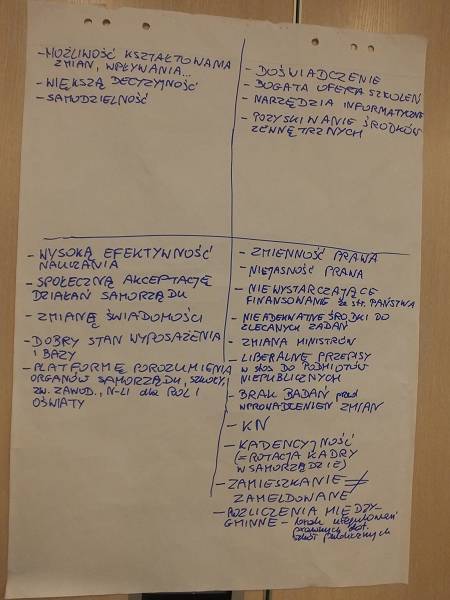 - MOŻLIWOŚĆ KSZTAŁTOWANIA
ZMIAN, WPŁYWANIA...
- WIĘKSZĄ DECYZYJNOŚĆ
- SAMODZIELNOŚĆ
- DOŚWIADCZENIE
- BOGATA OFERTA SZKOLEŃ
- NARZĘDZIA INFORMATYCZNE
- POZYSKIWANIE ŚRODKÓW
ZEWNĘTRZNYCH
- WYSOKĄ EFEKTYWNOŚĆ
NAUCZANIA
- SPOŁECZNĄ AKCEPTACJĘ
DZIAŁAŃ SAMORZĄDU
- ZMIANĘ ŚWIADOMOŚCI
- DOBRY STAN WYPOSAŻENIA
I BAZY
- PLATFORMĘ POROZUMIENIA
ORGANÓW SAMORZĄDU, SZKOŁY,
ZW. ZAWOD., N-LI dla ROLI
OŚWIATY
- ZMIENNOŚĆ PRAWA
- NIEJASNOŚĆ PRAWA
- NIEWYSTARCZAJĄCE
FINANSOWANE ze str. PAŃSTWA
- NIEADEKWATNE ŚRODKI DO
ZLECANYCH ZADAŃ
- ZMIANA MINISTRÓW
- LIBERALNE PRZEPISY
W stos. DO PODMIOTÓW
NIEPUBLICZNYCH
- BRAK BADAŃ przed
WPROWADZENIEM ZMIAN
- KN
- KADENCYJNOŚĆ
(= ROTACJA KADRY
W SAMORZĄDZIE)
- ZAMIESZKANIE ≠
ZAMELDOWANE
- ROZLICZENIA MIĘDZY-
GMINNE - brak uregulowań
prawnych dot.
szkół publicznych